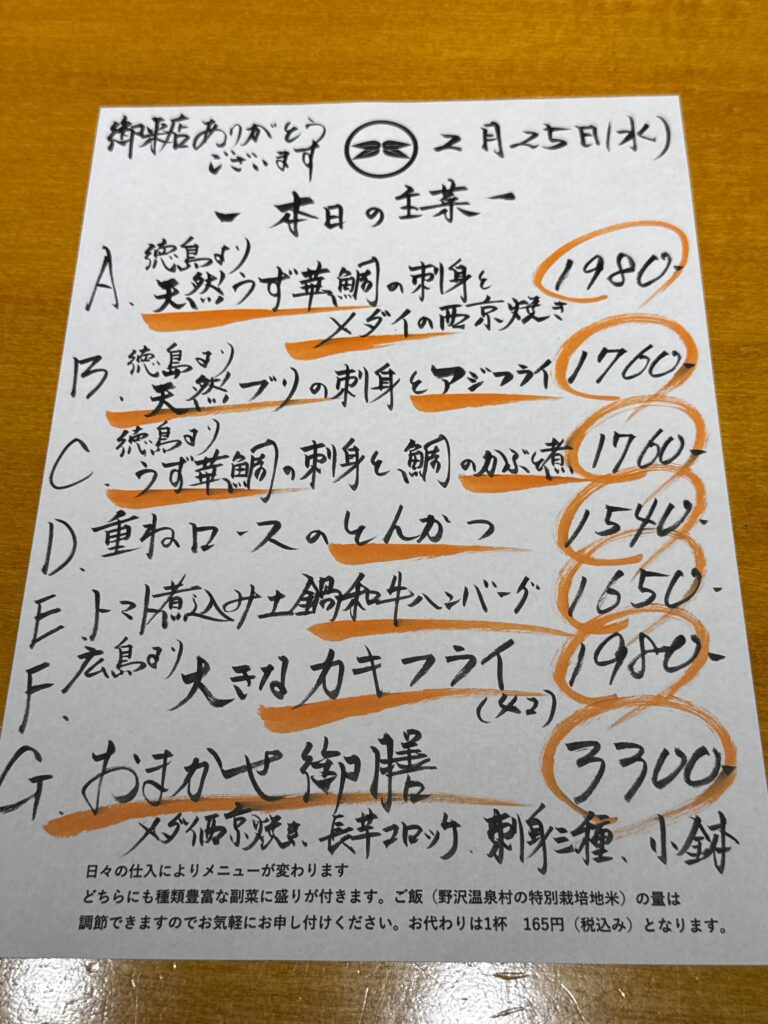 御来店ありがとう
ございます
2月25日(水)
ー本日の主菜ー
A. 徳島より
天然うず華鯛の刺身と
メダイの西京焼き 1980-
B. 徳島より
天然ブリの刺身とアジフライ 1760-
C. 徳島より
うず華鯛の刺身と鯛のかぶと煮 1760-
D. 重ねロースのとんかつ 1540-
E. トマト煮込み土鍋和牛ハンバーグ 1650-
F. 広島より 大きなカキフライ 1980-
G. おまかせ御膳 3300-
メダイ西京焼き、長芋コロッケ、刺身三種、小鉢
日々の仕入によりメニューが変わります
どちらにも種類豊富な副菜に盛りが付きます。ご飯（野沢温泉村の特別栽培地米）の量は
調節できますのでお気軽にお申し付けください。お代わりは1杯 165円（税込み）となります。